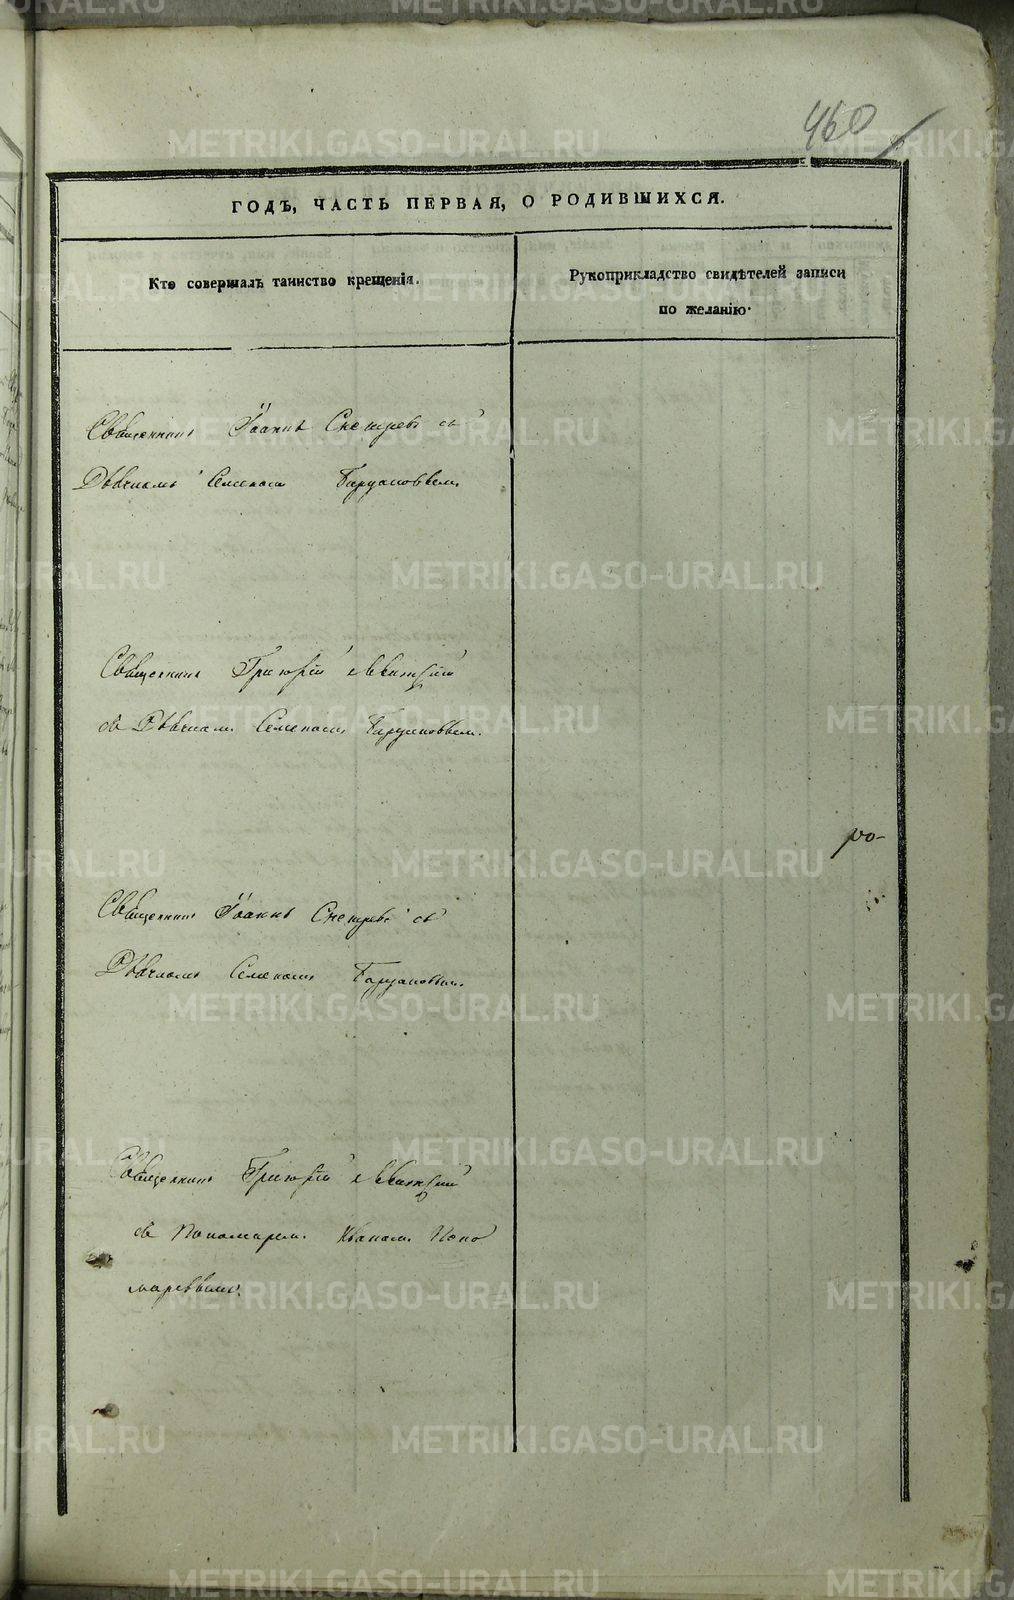 460
ГОДЪ, ЧАСТЬ ПЕРВАЯ, О РОДИВШИХСЯ.
Кто совершалъ таинство крещенія.
Рукоприкладство свидѣтелей записи
по желанію.
Священникъ Іоаннъ съ
Дьячкомъ Семеномъ
Священникъ Григорій
съ Дьячкомъ Семеномъ
ро-
Священникъ Іоаннъ съ
Дьячкомъ Семеномъ
Священникъ Григорій
съ Пономаремъ Иваномъ Поно
маревымъ.
METRIKI.GASO-URAL.RU